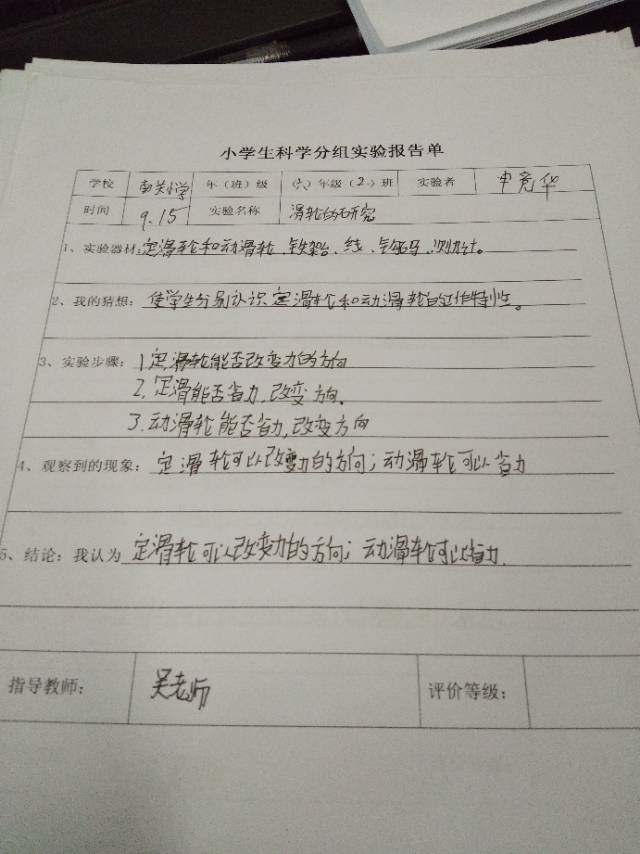 小学生科学分组实验报告单
学校 南关小学 年（班）级 （六）年级（2）班 实验者 申竞华
时间 9.15 实验名称 滑轮的研究
1、实验器材：定滑轮和动滑轮、铁架台、线、钩码、测力计。
2、我的猜想：使学生分别认识定滑轮和动滑轮的工作特性。
3、实验步骤：1.定滑轮能否改变力的方向
2.定滑能否省力,改变方向.
3.动滑轮能否省力,改变方向
4、观察到的现象：定滑轮可以改变力的方向;动滑轮可以省力
5、结论：我认为 定滑轮可以改变力的方向;动滑轮可以省力.
指导教师： 吴老师 评价等级：